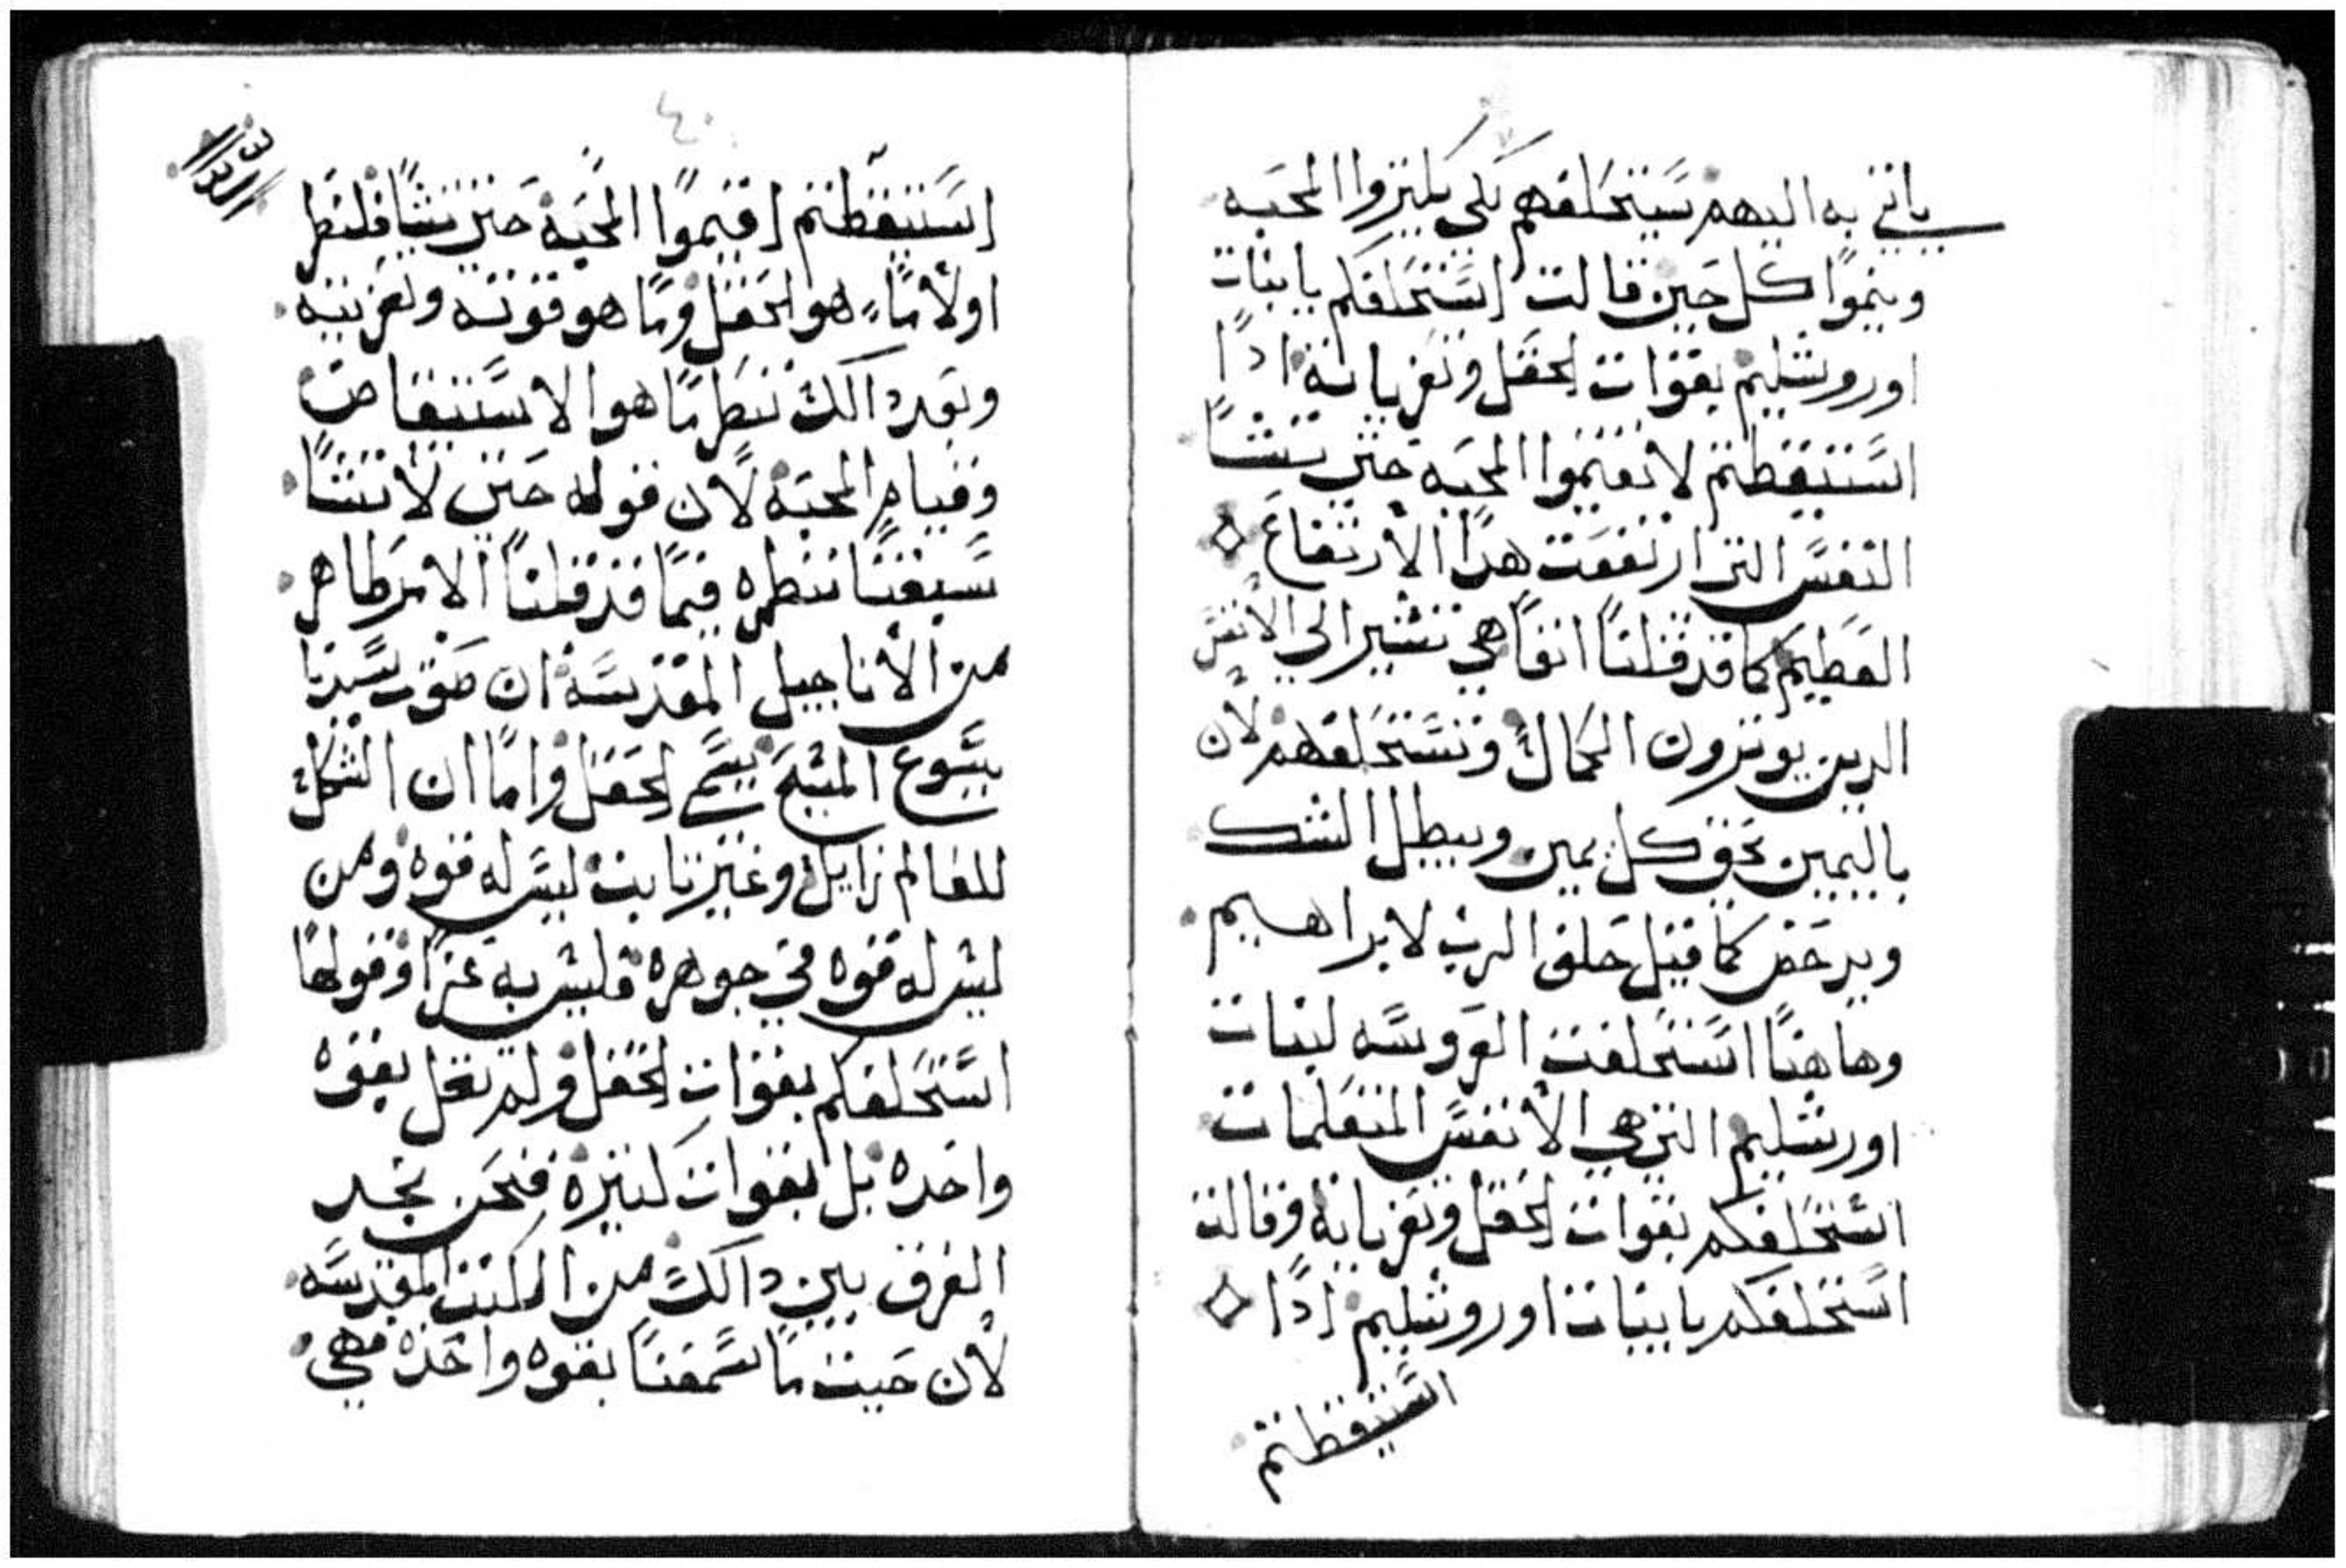 ياتي به اليهم سيتحلفهم لكي يكتروا المحبه
وينموا كل حين قالت استحلفكم يا بنات
اورورشليم بقوات الحقل وتعزياته اذا
استيقظتم لا تقيموا المحبه حتي تشا
النفس التي ارتفعت هدا الارتفاع
العظيم كما قد قلنا انفا هي تشير الي الانفس
الدين يوترون الكمال وتستحلفهم لان
باليمين تحق كل يمين ويبطل الشك
ويدحض كما قيل حلف الرب لابراهيم
وهاهنا استحلفت العروسه لبنات
اورشليم التي هي الانفس المتعلمات
استحلفكم بقوات الحقل وتعزياته وقالت
استحلفكم يا بنات اوروشليم اذا
استيقظتم
٤٠
استيقظتم اقيموا المحبه حتي تشا فلننظر
اولا ما هو الحقل وما هو قوته وتعزيته
وبعد دالك ننظر ما هو الاستيقاض
وقيام المحبه لان قوله حتي لا تشا
سبقنا ننظره فيما قد قلنا الامر ظاهر
من الاناجيل المقدسه ان صوت سيدنا
يسوع المسيح يسمي الحقل واما ان الشكل
للعالم زايل وغير تابت ليس له قوه ومن
ليس له قوه في جوهره فليس به عزا وقولها
استحلفكم بقوات الحقل ولم تقل بقوه
واحده بل بقوات كتيره فنحن نجد
الفرق بين دالك من الكتب المقدسه
لان حيت ما سمعنا بقوه واحده فهي